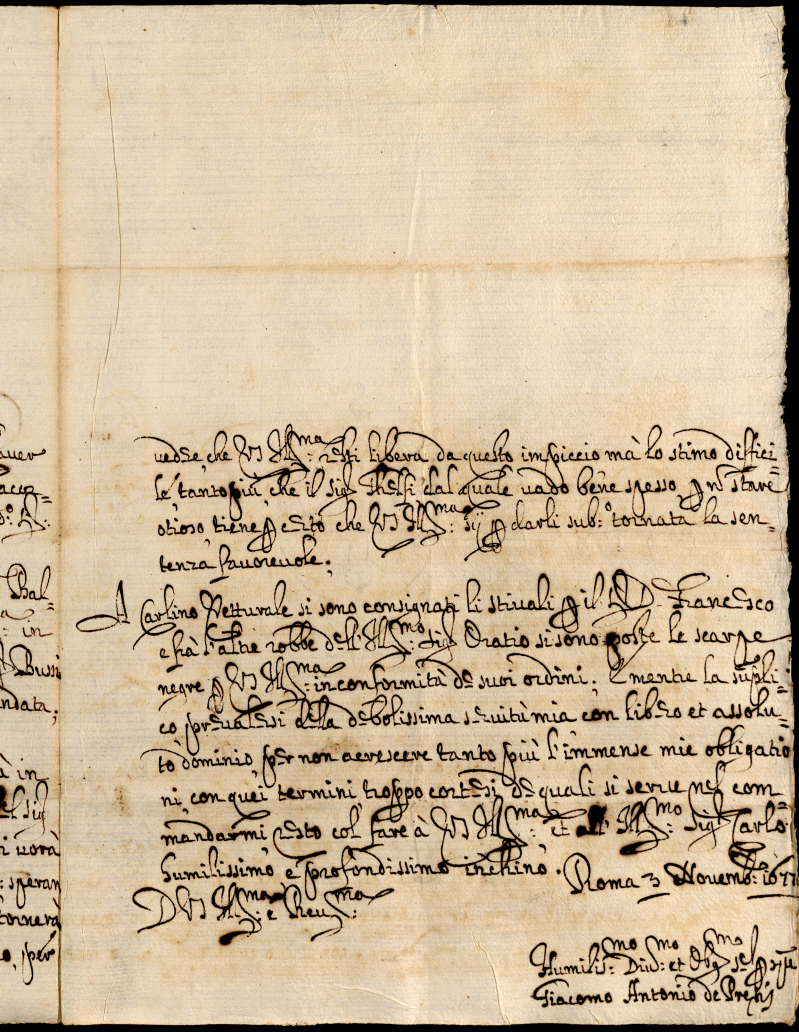 auer
Bal=
in
Bussi
ndata;
à in
el sig
ri uorà
: speran
tornerà
o, per
uedere, che VS Ill:ma resti libera da questo impiccio mà lo stimo diffici=
le, tanto più, che il sig dal quale uado bene spesso, p nō stare
otioso, tiene p certo che VS Ill:ma sij p darli sub:o tornata la sen=
tenza fauoreuole.
A Carlino Vetturale si sono consignati li stiuali p il D. Francesco
e frà l'altre robbe dell'Ill:mo sig Oratio si sono poste le scarpe
negre p VS Ill:ma in conformità de suoi ordini. E mentre la supli=
co preualersi della debolissima seruitù mia con libero et assolu=
to dominio per non accrescere tanto più l'immense mie obligatio
ni, con quei termini troppo cortesi de quali si serue nel com=
mandarmi resto col fare à VS Ill:ma et all' Ill:mo sig Carlo
humilissimo e profondissimo inchino. Roma 3 Novemb: 1677
D VS Ill:ma e Reu:ma
Humilis:mo Diu:mo et Obg:mo
Giacomo Antonio de